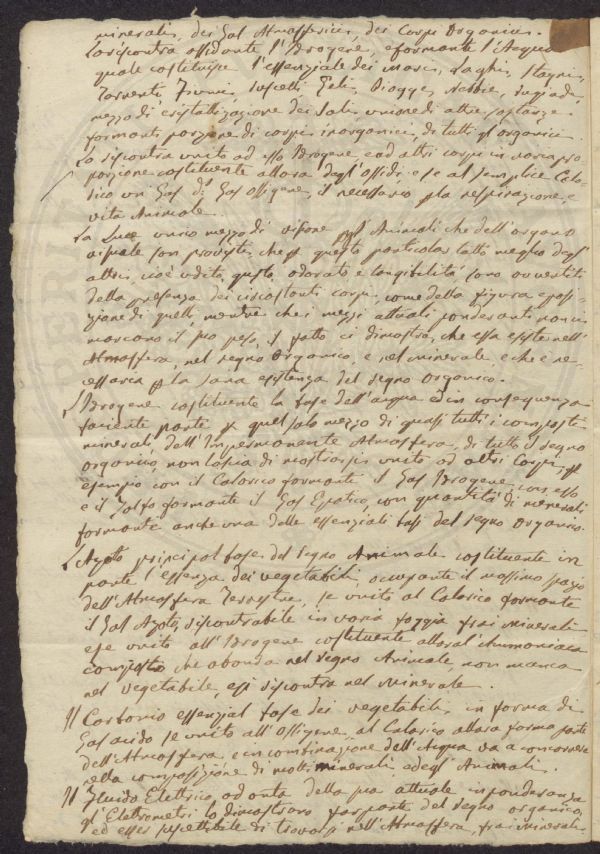 minerali, dei Gas Atmosferici, dei Corpi Organici.
Lo riscontra ossidante l'Idrogene, e formante l'Acqua
quale costituisce l'essenziale dei Mari, Laghi, Stagni,
Torrenti, Fiumi, Ruscelli, Geli, Piogge, Nebbie, Rugiade,
mezzo di cristallizazione dei Sali, unione di altre sostanze
formanti porzione di corpi inorganici, di tutti gl'organici
Lo riscontra unito ad esso Idrogene e ad altri corpi in varia pro
porzione costituente allora degl'Ossidi, e se al semplice Calo
rico un Gas d.º Gas Ossigene, il necessario p la respirazione, e
vita Animale.
La Luce unico mezzo di visione pgl'Animali che dell'organo
visuale son provisti, che p questo particolar tatto meglio degl'
altri, cioè udito, gusto, odorato e tangibilità sono avvertiti
della presenza dei circostanti corpi, come della figura e posi-
zione di quelli, mentre che i mezzi attuali ponderanti non ci
marcano il suo peso, il fatto ci dimostra, che essa esiste nell'
Atmosfera, nel regno Organico, e nel minerale, e che è ne-
cessaria p la sana esistenza del regno Organico.
L'Idrogene costituente la base dell'acqua ed in consequenza
faciente parte p quel solo mezzo di quasi tutti i composti
minerali dell'Impermanente Atmosfera, di tutto il regno
organico, non lascia di mostrarsi unito ad altri Corpi, p
esempio con il Calorico formante il Gas Idrogene, con esso
e il Zolfo formante il Gas Epatico, con quantità di minerali
formante anche una delle essenziali basi del regno Organico.
L'Azoto principal base del regno Animale costituente in
parte l'essenza dei vegetabili, occupante il massimo spazio
dell'Atmosfera Terrestre, se unito al Calorico formante
il Gas Azoto, riscontrabile in varia foggia frai Minerali
e se unito all'Idrogene costituente allora l'Ammoniaca
composto che abonda nel regno Animale, non manca
nel vegetabile, e si riscontra nel Minerale.
Il Carbonio essenzial base dei vegetabili, in forma di
Gas acido se unito all'Ossigene, al Calorico allora forma parte
dell'Atmosfera, e in combinazione dell'Acqua va a concorrere
nella composizione di molti minerali, e degl'Animali.
Il Fluido Elettrico ad onta della sua attuale inponderanza
gl'Elettrometri lo dimostrano far parte del regno organico,
ed esser suscettibile di trovarsi nell'Atmosfera, frai minerali